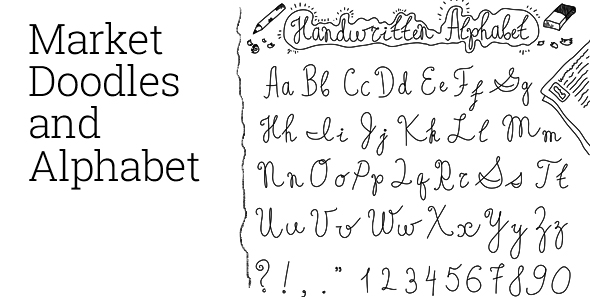 Market
Doodles
and
Alphabet
Handwritten Alphabet
Aa Bb Cc Dd Ee Ff Gg
Hh Ii Jj Kk Ll Mm
Nn Oo Pp Qq Rr Ss Tt
Uu Vv Ww Xx Yy Zz
? ! , . " 1 2 3 4 5 6 7 8 9 0